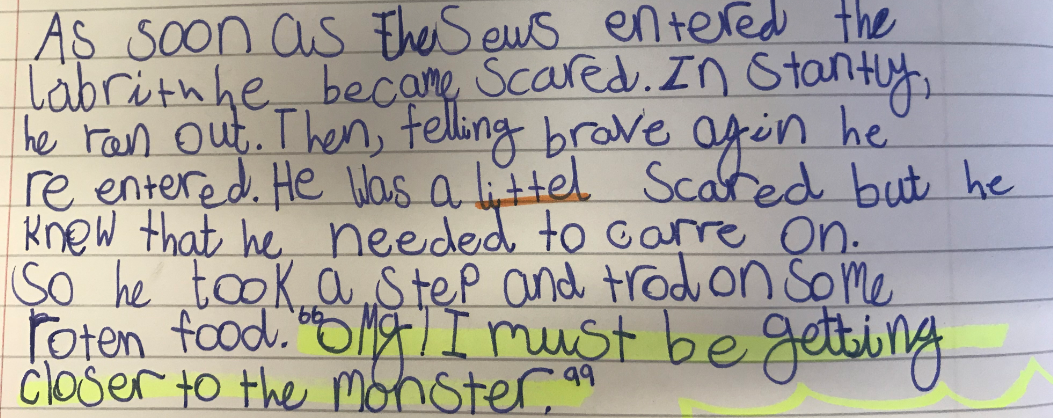 As soon as theSeus entered the
labrithhe became Scared. In Stantly,
he ran out. Then, felling brave agin he
re entered. He was a littel Scared but he
knew that he needed to carre on.
So he took a step and trod on some
roten food. "OMg! I must be getting
closer to the monster."